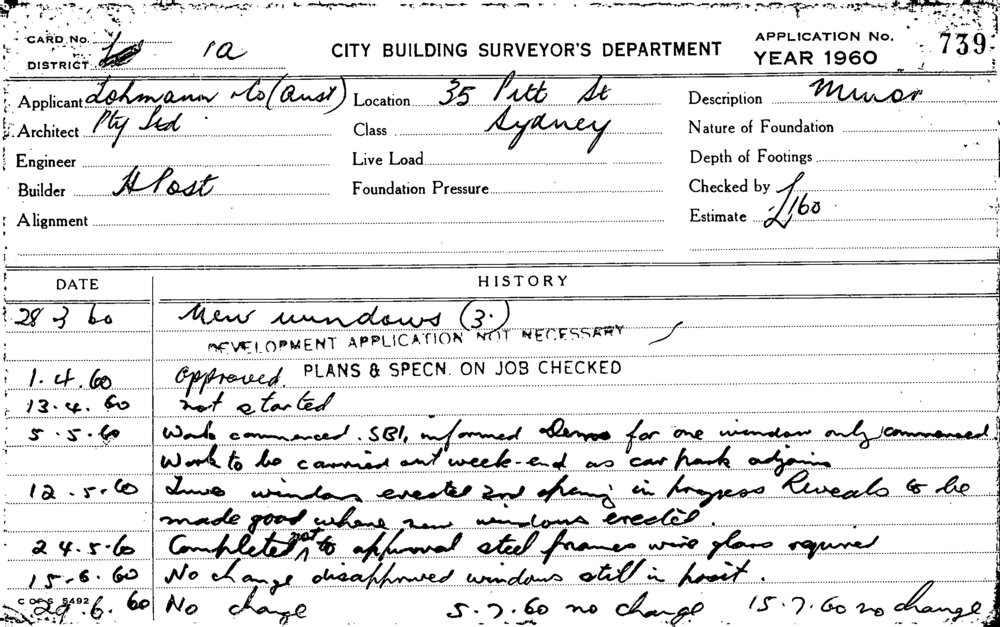 CARD No.
DISTRICT 1a
CITY BUILDING SURVEYOR'S DEPARTMENT
APPLICATION No. 739
YEAR 1960
Applicant Lohmann & Co (Aust)
Architect Pty Ltd
Engineer
Builder H Post
Alignment
Location 35 Pitt St
Class Sydney
Live Load
Foundation Pressure
Description Minor
Nature of Foundation
Depth of Footings
Checked by
Estimate £160
DATE HISTORY
28 3 60 New windows (3.)
DEVELOPMENT APPLICATION NOT NECESSARY
1.4.60 Approved. PLANS & SPECN. ON JOB CHECKED
13.4.60 not started
5.5.60 Work commenced. SBI, informed Demo for one window only commenced
Work to be carried out week-end as car park adjoins
12.5.60 windows erected 2nd opening in progress Reveals to be
made good where new windows erected.
24.5.60 Completed not to approval steel frames wire glass required
15.6.60 No change disapproved windows still in posit.
29.6.60 No change 5.7.60 no change 15.7.60 no change